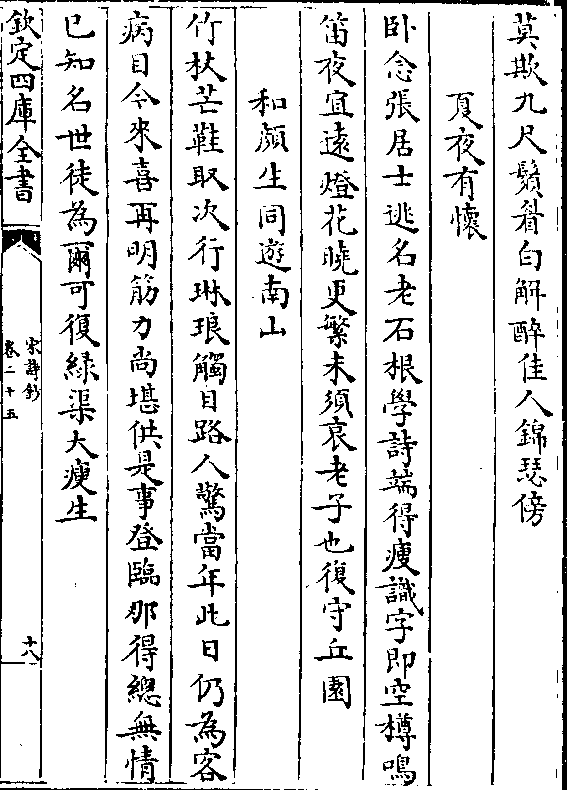 莫欺九尺鬚眉白解醉佳人錦瑟傍
夏夜有懷
卧念張居士逃名老石根學詩端得瘦識字即空樽鳴
笛夜宜遠燈花曉更繁未須哀老子也復守丘園
和顔生同遊南山
竹杖芒鞋取次行琳琅觸目路人驚當年此日仍為客
病目今來喜再明筋力尚堪供是事登臨那得總無情
已知名世徒為爾可復緑渠大瘦生
欽定四庫全書
宋詩鈔
卷二十五
十八